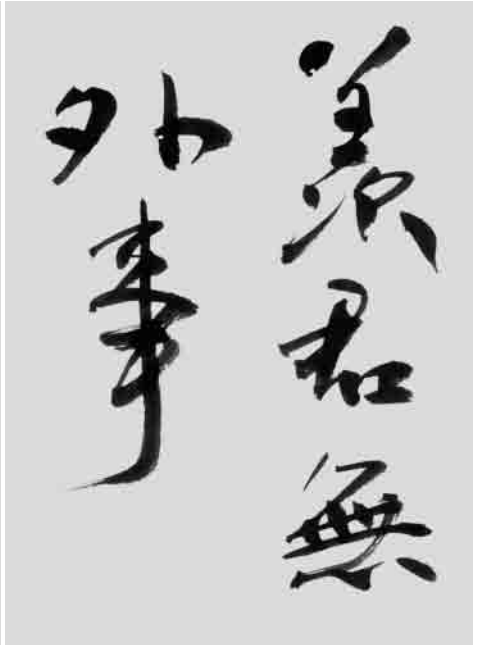 羨君無
外事